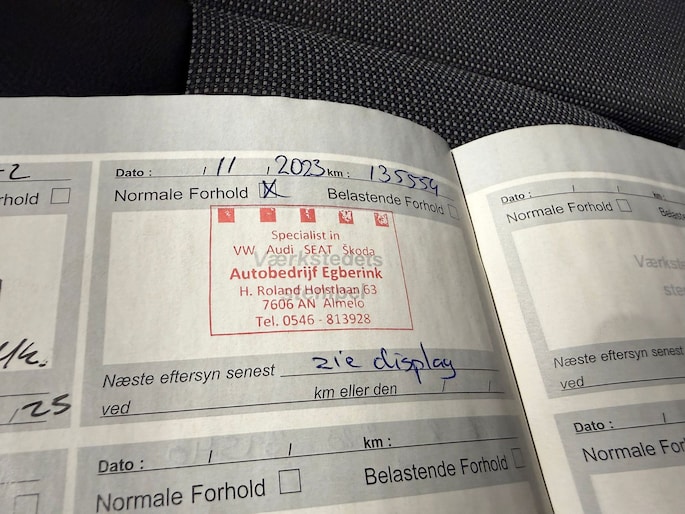 -2
rhold
Dato : / 11 / 2023 km : 135554
Normale Forhold X Belastende Forhold
Værkstedets
stempel
Specialist in
VW Audi SEAT Škoda
Autobedrijf Egberink
H. Roland Holstlaan 63
7606 AN Almelo
Tel. 0546 - 813928
Næste eftersyn senest zie display
ved km eller den / /
/ 25
Dato : / / km :
Normale Forhold Belastende Forhold
Dato : / / km:
Normale Forhold Belaste
Værkste
ste
Næste eftersyn senest
ved
Dato : /
Normale Fo